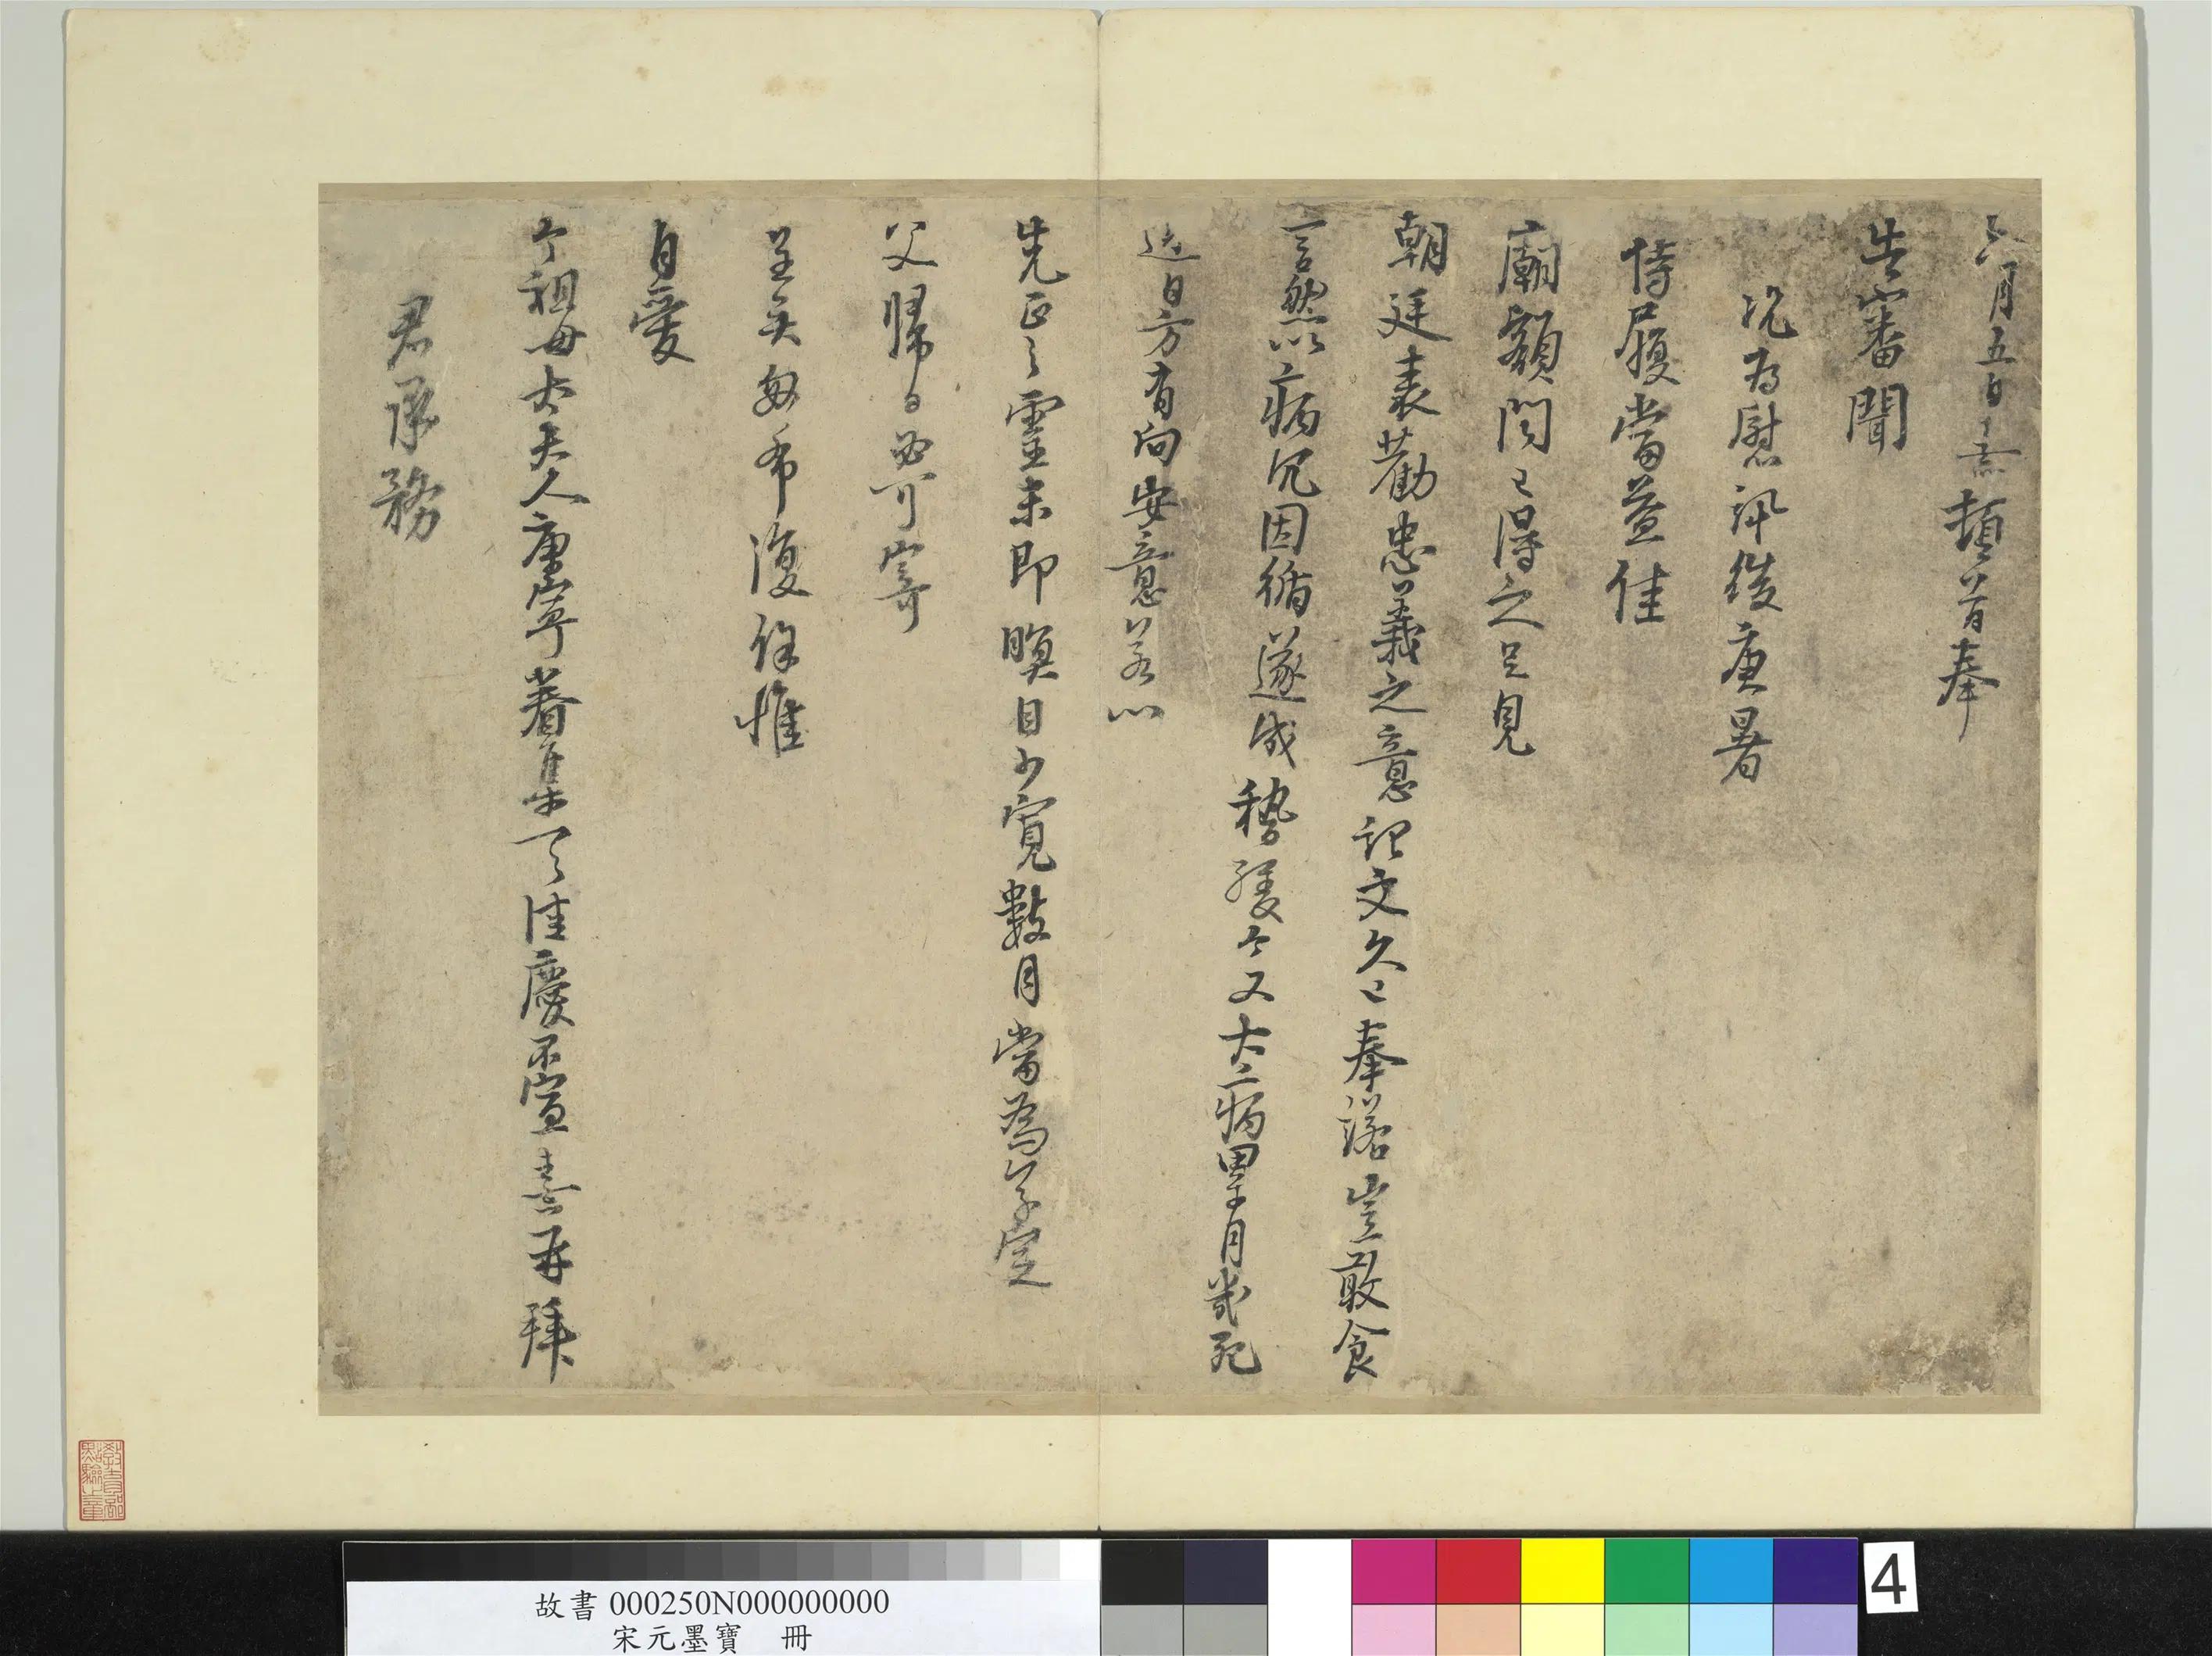 六月五日熹頓首奉
告審聞
況為慰訊後庚暑
侍履當益佳
廟額聞已得之足見
朝廷表勸忠義之意記文久已奉諾豈敢食
言然以病冗因循遂成稽緩今又大病累月幾死
近日方有向安意若以
先正之靈未即瞑目少寬數月當為草定
父歸日必可寄
呈矣匆匆布復餘惟
自愛
令祖母太夫人康寧眷集一一佳慶不宣熹再拜
君承務
教育部點驗之章
故書 000250N000000000
宋元墨寶 冊
4